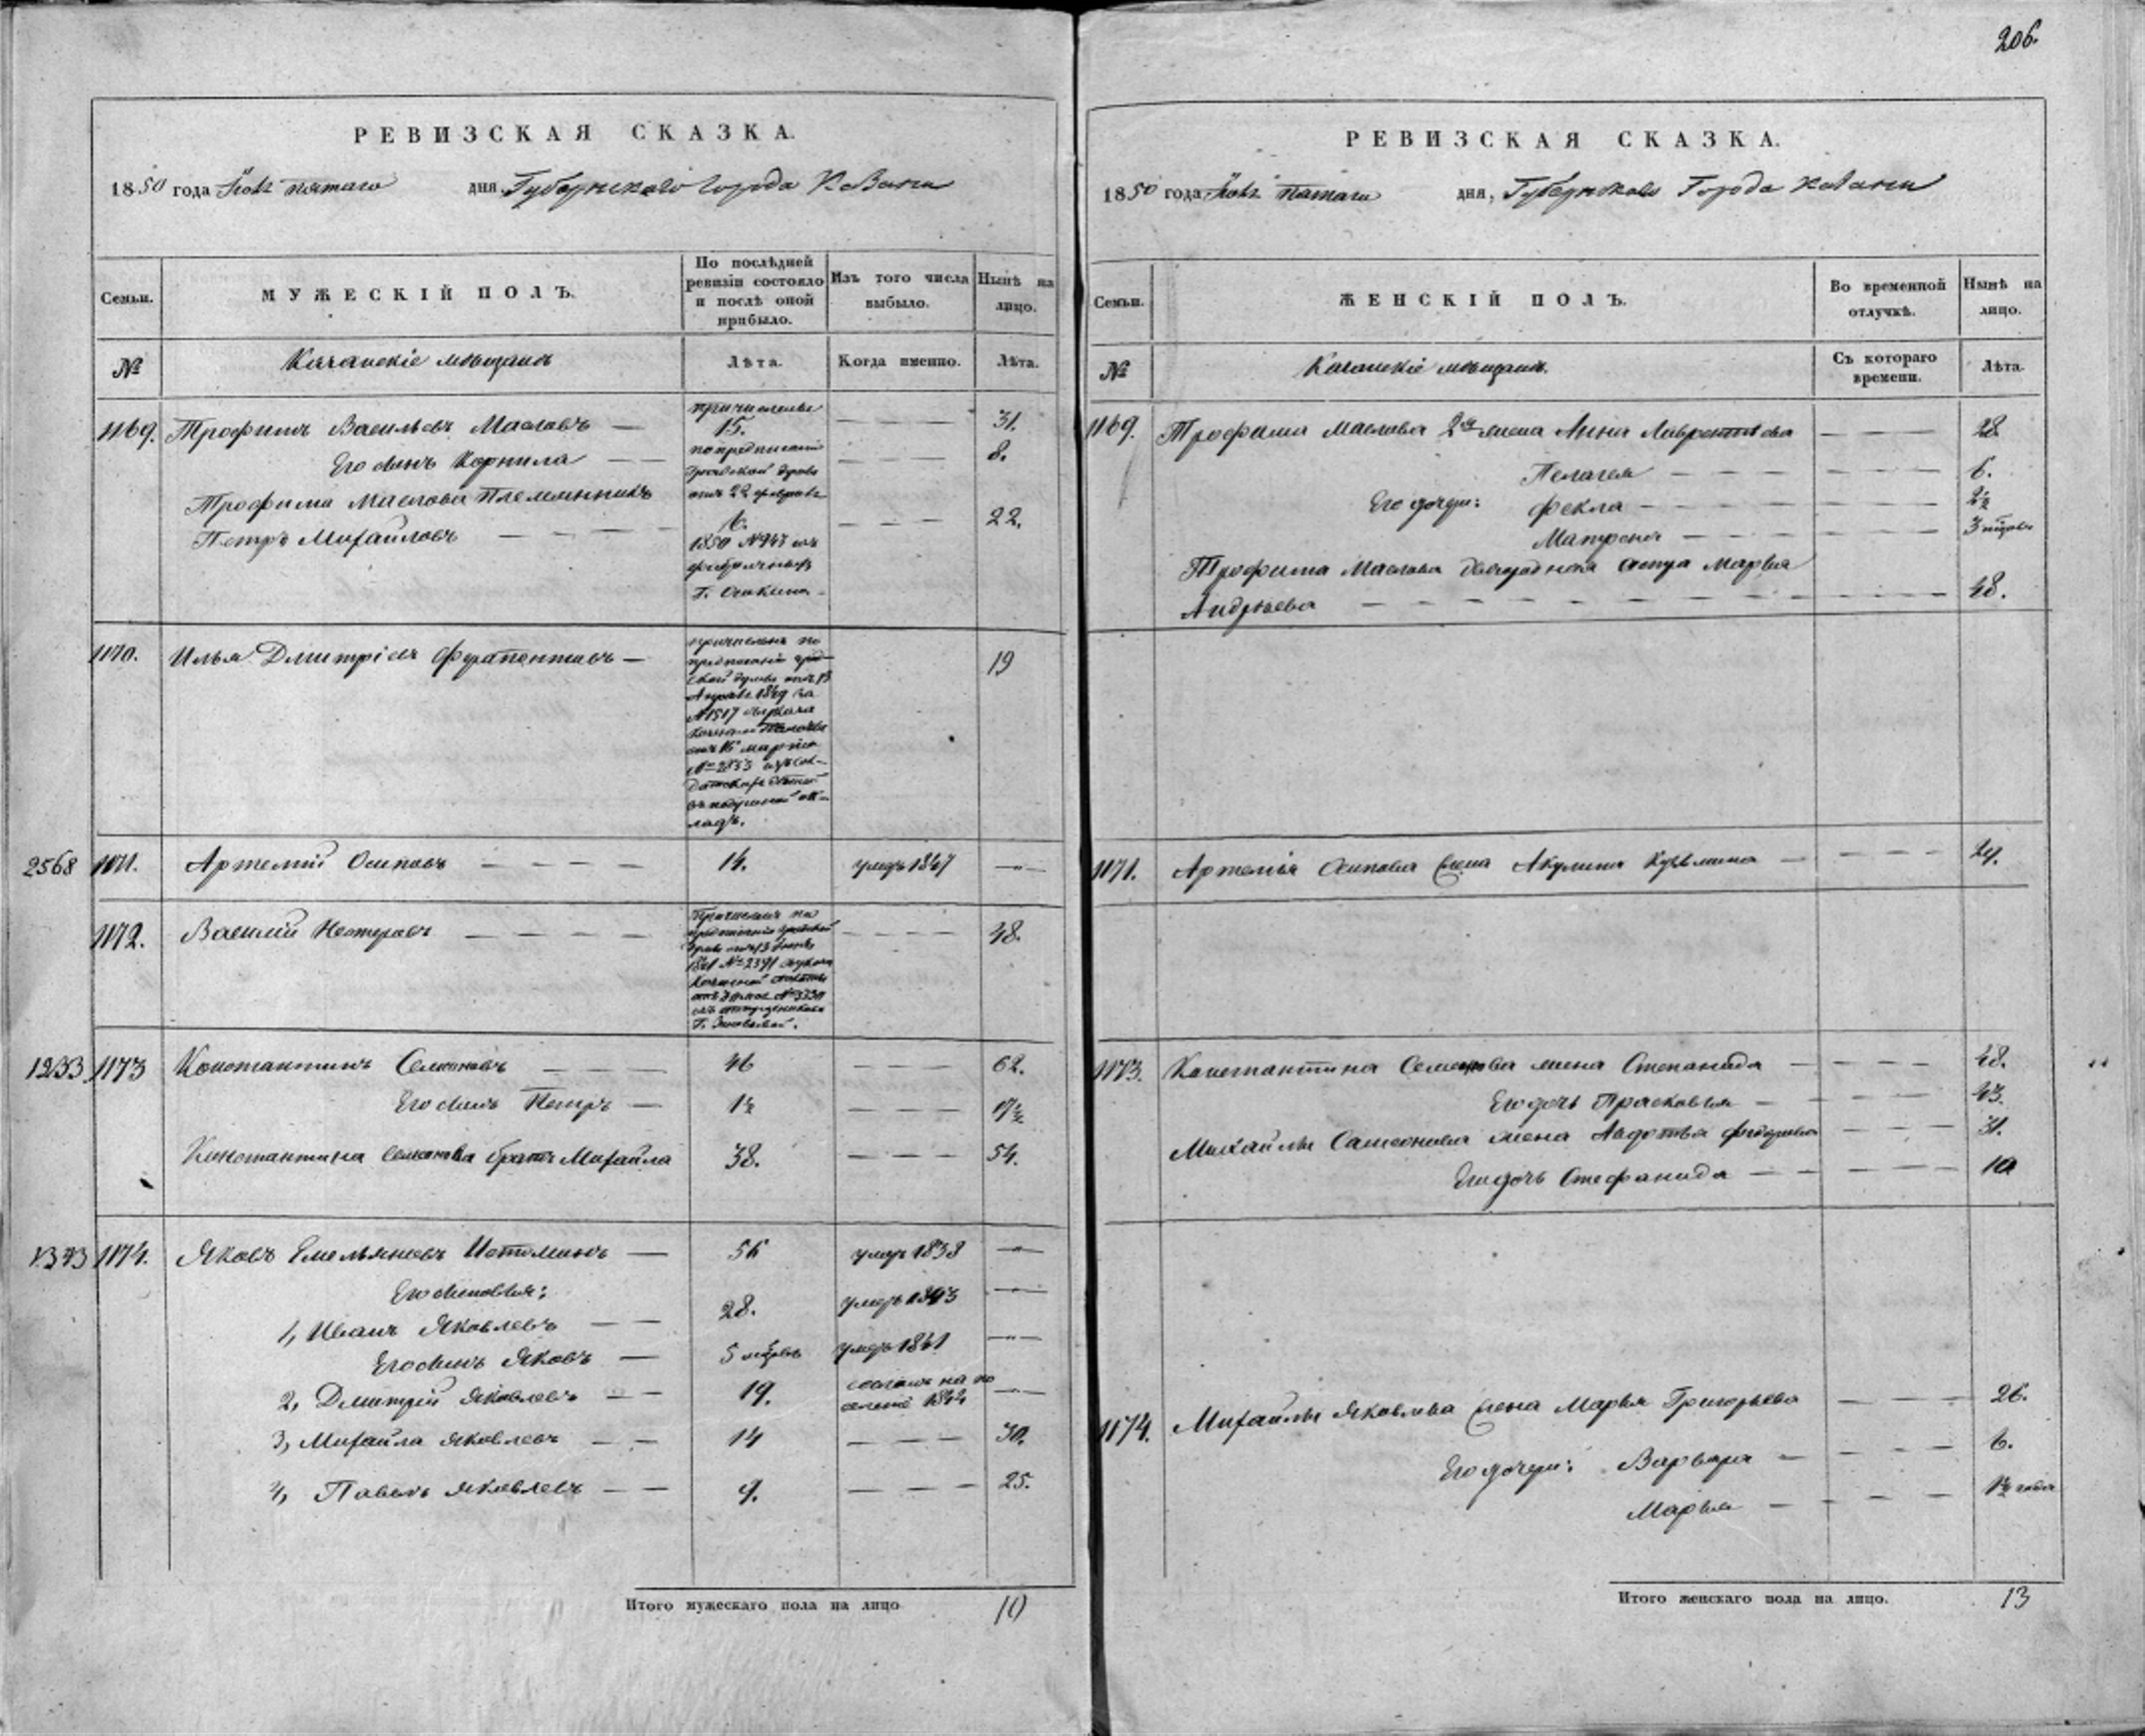 206.
РЕВИЗСКАЯ СКАЗКА.
1850 года пятаго дня, Губернскаго Города Казани
Семьи. МУЖЕСКІЙ ПОЛЪ. По послѣдней ревизіи состояло и послѣ оной прибыло. Изъ того числа выбыло. Нынѣ на лицо.
№ Казанскіе мѣщане Лѣта. Когда именно. Лѣта.
1169. Трофимъ Васильевъ Масловъ — причисленъ 15. — — — 31.
Его сынъ Корнила — — по предписанію — — — 8.
Градской думы
Трофима Маслова племянникъ отъ 22 февраля
Петръ Михайловъ — — — — 6. — — — 22.
1850 № 943 изъ
Г. Осокина
1170. Илья Дмитріевъ Ферапонтьевъ — причисленъ по 19
предписанію град-
ской думы отъ 18
Апрѣля 1849 за
№ 1517 и указа
Казенной Палаты
отъ 16 марта
№ 2853 изъ сол-
датскихъ дѣтей
въ подушный ок-
ладъ.
2568 1171. Артемій Осиповъ — — — — 14. умеръ 1847 —"—
1172. Василій Нестеровъ — — — — Причисленъ по — — — — 48.
предписанію градской
думы отъ 13 Іюня
1841 № 2391 и указа
Казенной палаты
отъ № 3330
изъ отпущенниковъ
Г.
1233 1173 Константинъ Семеновъ — — — 46 — — — 62.
Его сынъ Петръ — 1½ — — — 17½
Константина Семенова братъ Михайла 38. — — — 54.
1343 1174. Яковъ Емельяновъ Истоминъ — 56 умеръ 1838 —"—
Его сыновья:
1, Иванъ Яковлевъ — — 28. умеръ 1843 —"—
Его сынъ Яковъ — 5 мѣсяцевъ умеръ 1841 —"—
2, Дмитрій Яковлевъ — — 19. сосланъ на по
селеніе 1842 —"—
3, Михайла Яковлевъ — — 14 — — — 30.
4, Павелъ Яковлевъ — — 9. — — — 25.
Итого мужескаго пола на лицо 10
РЕВИЗСКАЯ СКАЗКА.
1850 года пятаго дня, Губернскаго Города Казани
Семьи. ЖЕНСКІЙ ПОЛЪ. Во временной отлучкѣ. Нынѣ на лицо.
№ Казанскіе мѣщане. Съ котораго времени. Лѣта.
1169. Трофима Маслова 2я жена Анна Лаврентьева — — — — 28.
Пелагея — — — — 6.
Его дочери: Фекла — — — — 2½
Матрена — — — — 3 мѣсяца
Трофима Маслова двоюроднаго брата Марья
Андреева — — — — 48.
1171. Артемія Осипова жена Акулина Кузьмина — — — — 24.
1173. Константина Семенова жена Степанида — — — — 48.
Его дочь Прасковья — — — — 23.
Михайлы Семенова жена Авдотья Федорова — — — 31.
Его дочь Стефанида — — — — 10
1174. Михайлы Яковлева жена Марья Григорьева — — — 26.
Его дочери: Варвара — — — — 6.
Марья — — — — 1½ года
Итого женскаго пола на лицо. 13